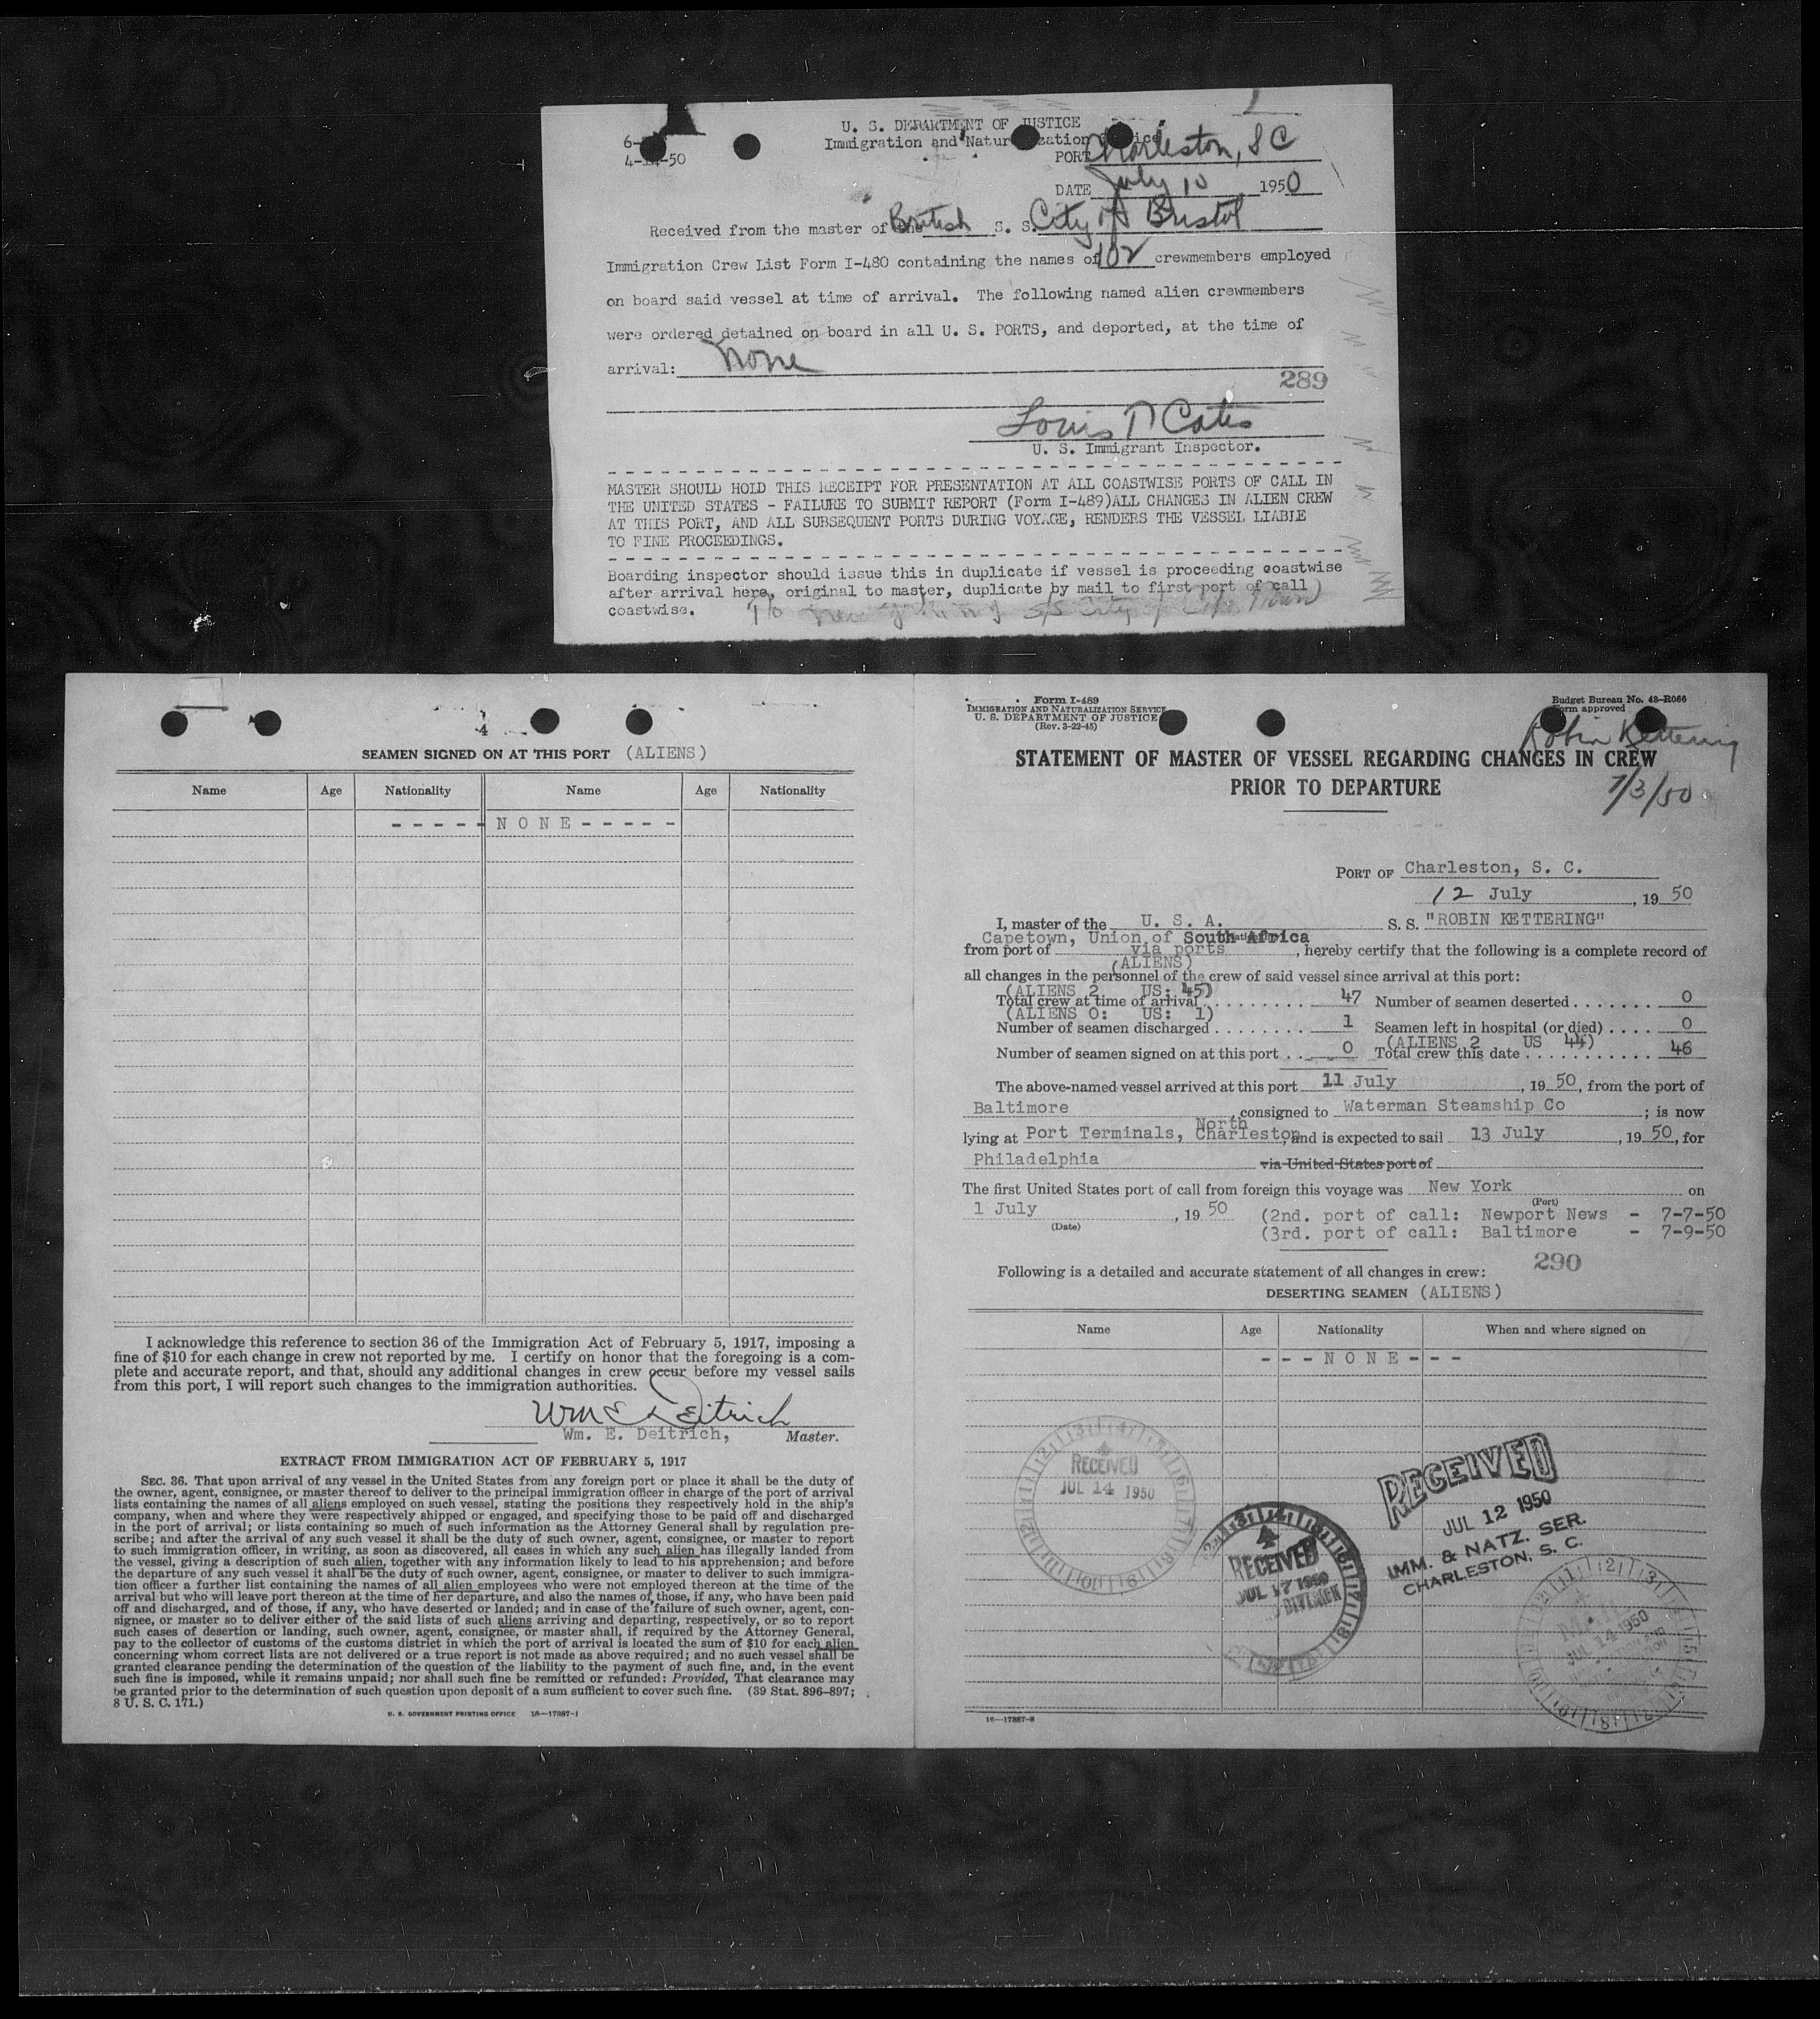 U. S. DEPARTMENT OF JUSTICE
Immigration and Naturalization Service
4-14-50
PORT Charleston, S C
DATE July 10 1950
Received from the master of the British S. S. City of Bristol
Immigration Crew List Form I-480 containing the names of 102 crewmembers employed
on board said vessel at time of arrival. The following named alien crewmembers
were ordered detained on board in all U. S. PORTS, and deported, at the time of
arrival: None
289
Louis N Cates
U. S. Immigrant Inspector.
MASTER SHOULD HOLD THIS RECEIPT FOR PRESENTATION AT ALL COASTWISE PORTS OF CALL IN
THE UNITED STATES - FAILURE TO SUBMIT REPORT (Form I-489)ALL CHANGES IN ALIEN CREW
AT THIS PORT, AND ALL SUBSEQUENT PORTS DURING VOYAGE, RENDERS THE VESSEL LIABLE
TO FINE PROCEEDINGS.
Boarding inspector should issue this in duplicate if vessel is proceeding coastwise
after arrival here, original to master, duplicate by mail to first port of call
coastwise.
4
SEAMEN SIGNED ON AT THIS PORT (ALIENS)
Name Age Nationality Name Age Nationality
- - - - - N O N E - - - - -
I acknowledge this reference to section 36 of the Immigration Act of February 5, 1917, imposing a
fine of $10 for each change in crew not reported by me. I certify on honor that the foregoing is a com-
plete and accurate report, and that, should any additional changes in crew occur before my vessel sails
from this port, I will report such changes to the immigration authorities.
Wm E Deitrich
Wm. E. Deitrich, Master.
EXTRACT FROM IMMIGRATION ACT OF FEBRUARY 5, 1917
SEC. 36. That upon arrival of any vessel in the United States from any foreign port or place it shall be the duty of
the owner, agent, consignee, or master thereof to deliver to the principal immigration officer in charge of the port of arrival
lists containing the names of all aliens employed on such vessel, stating the positions they respectively hold in the ship's
company, when and where they were respectively shipped or engaged, and specifying those to be paid off and discharged
in the port of arrival; or lists containing so much of such information as the Attorney General shall by regulation pre-
scribe; and after the arrival of any such vessel it shall be the duty of such owner, agent, consignee, or master to report
to such immigration officer, in writing, as soon as discovered, all cases in which any such alien has illegally landed from
the vessel, giving a description of such alien, together with any information likely to lead to his apprehension; and before
the departure of any such vessel it shall be the duty of such owner, agent, consignee, or master to deliver to such immigra-
tion officer a further list containing the names of all alien employees who were not employed thereon at the time of the
arrival but who will leave port thereon at the time of her departure, and also the names of those, if any, who have been paid
off and discharged, and of those, if any, who have deserted or landed; and in case of the failure of such owner, agent, con-
signee, or master so to deliver either of the said lists of such aliens arriving and departing, respectively, or so to report
such cases of desertion or landing, such owner, agent, consignee, or master shall, if required by the Attorney General,
pay to the collector of customs of the customs district in which the port of arrival is located the sum of $10 for each alien
concerning whom correct lists are not delivered or a true report is not made as above required; and no such vessel shall be
granted clearance pending the determination of the question of the liability to the payment of such fine, and, in the event
such fine is imposed, while it remains unpaid; nor shall such fine be remitted or refunded: Provided, That clearance may
be granted prior to the determination of such question upon deposit of a sum sufficient to cover such fine. (39 Stat. 896-897;
8 U. S. C. 171.)
U. S. GOVERNMENT PRINTING OFFICE 16—17387-1
Form I-489
IMMIGRATION AND NATURALIZATION SERVICE
U. S. DEPARTMENT OF JUSTICE
(Rev. 3-22-45)
Budget Bureau No. 43-R066
Form approved
Robin Kettering
7/3/50
STATEMENT OF MASTER OF VESSEL REGARDING CHANGES IN CREW
PRIOR TO DEPARTURE
PORT OF Charleston, S. C.
12 July, 19 50
I, master of the U. S. A. S. S. "ROBIN KETTERING"
Capetown, Union of South Africa
from port of via ports, hereby certify that the following is a complete record of
(ALIENS)
all changes in the personnel of the crew of said vessel since arrival at this port:
(ALIENS 2 US: 45)
Total crew at time of arrival 47 Number of seamen deserted 0
(ALIENS 0: US: 1)
Number of seamen discharged 1 Seamen left in hospital (or died) 0
(ALIENS 2 US 44)
Number of seamen signed on at this port 0 Total crew this date 46
The above-named vessel arrived at this port 11 July, 19 50, from the port of
Baltimore, consigned to Waterman Steamship Co; is now
lying at Port Terminals, North Charleston, and is expected to sail 13 July, 19 50, for
Philadelphia via United States port of
The first United States port of call from foreign this voyage was New York on
(Port)
1 July, 19 50 (2nd. port of call: Newport News - 7-7-50
(Date) (3rd. port of call: Baltimore - 7-9-50
290
Following is a detailed and accurate statement of all changes in crew:
DESERTING SEAMEN (ALIENS)
Name Age Nationality When and where signed on
- - - N O N E - - -
RECEIVED
JUL 14 1950
RECEIVED
JUL 17 1950
DIVISION
RECEIVED
JUL 12 1950
IMM. & NATZ. SER.
CHARLESTON, S. C.
MAIL
JUL 14 1950
16—17387-3